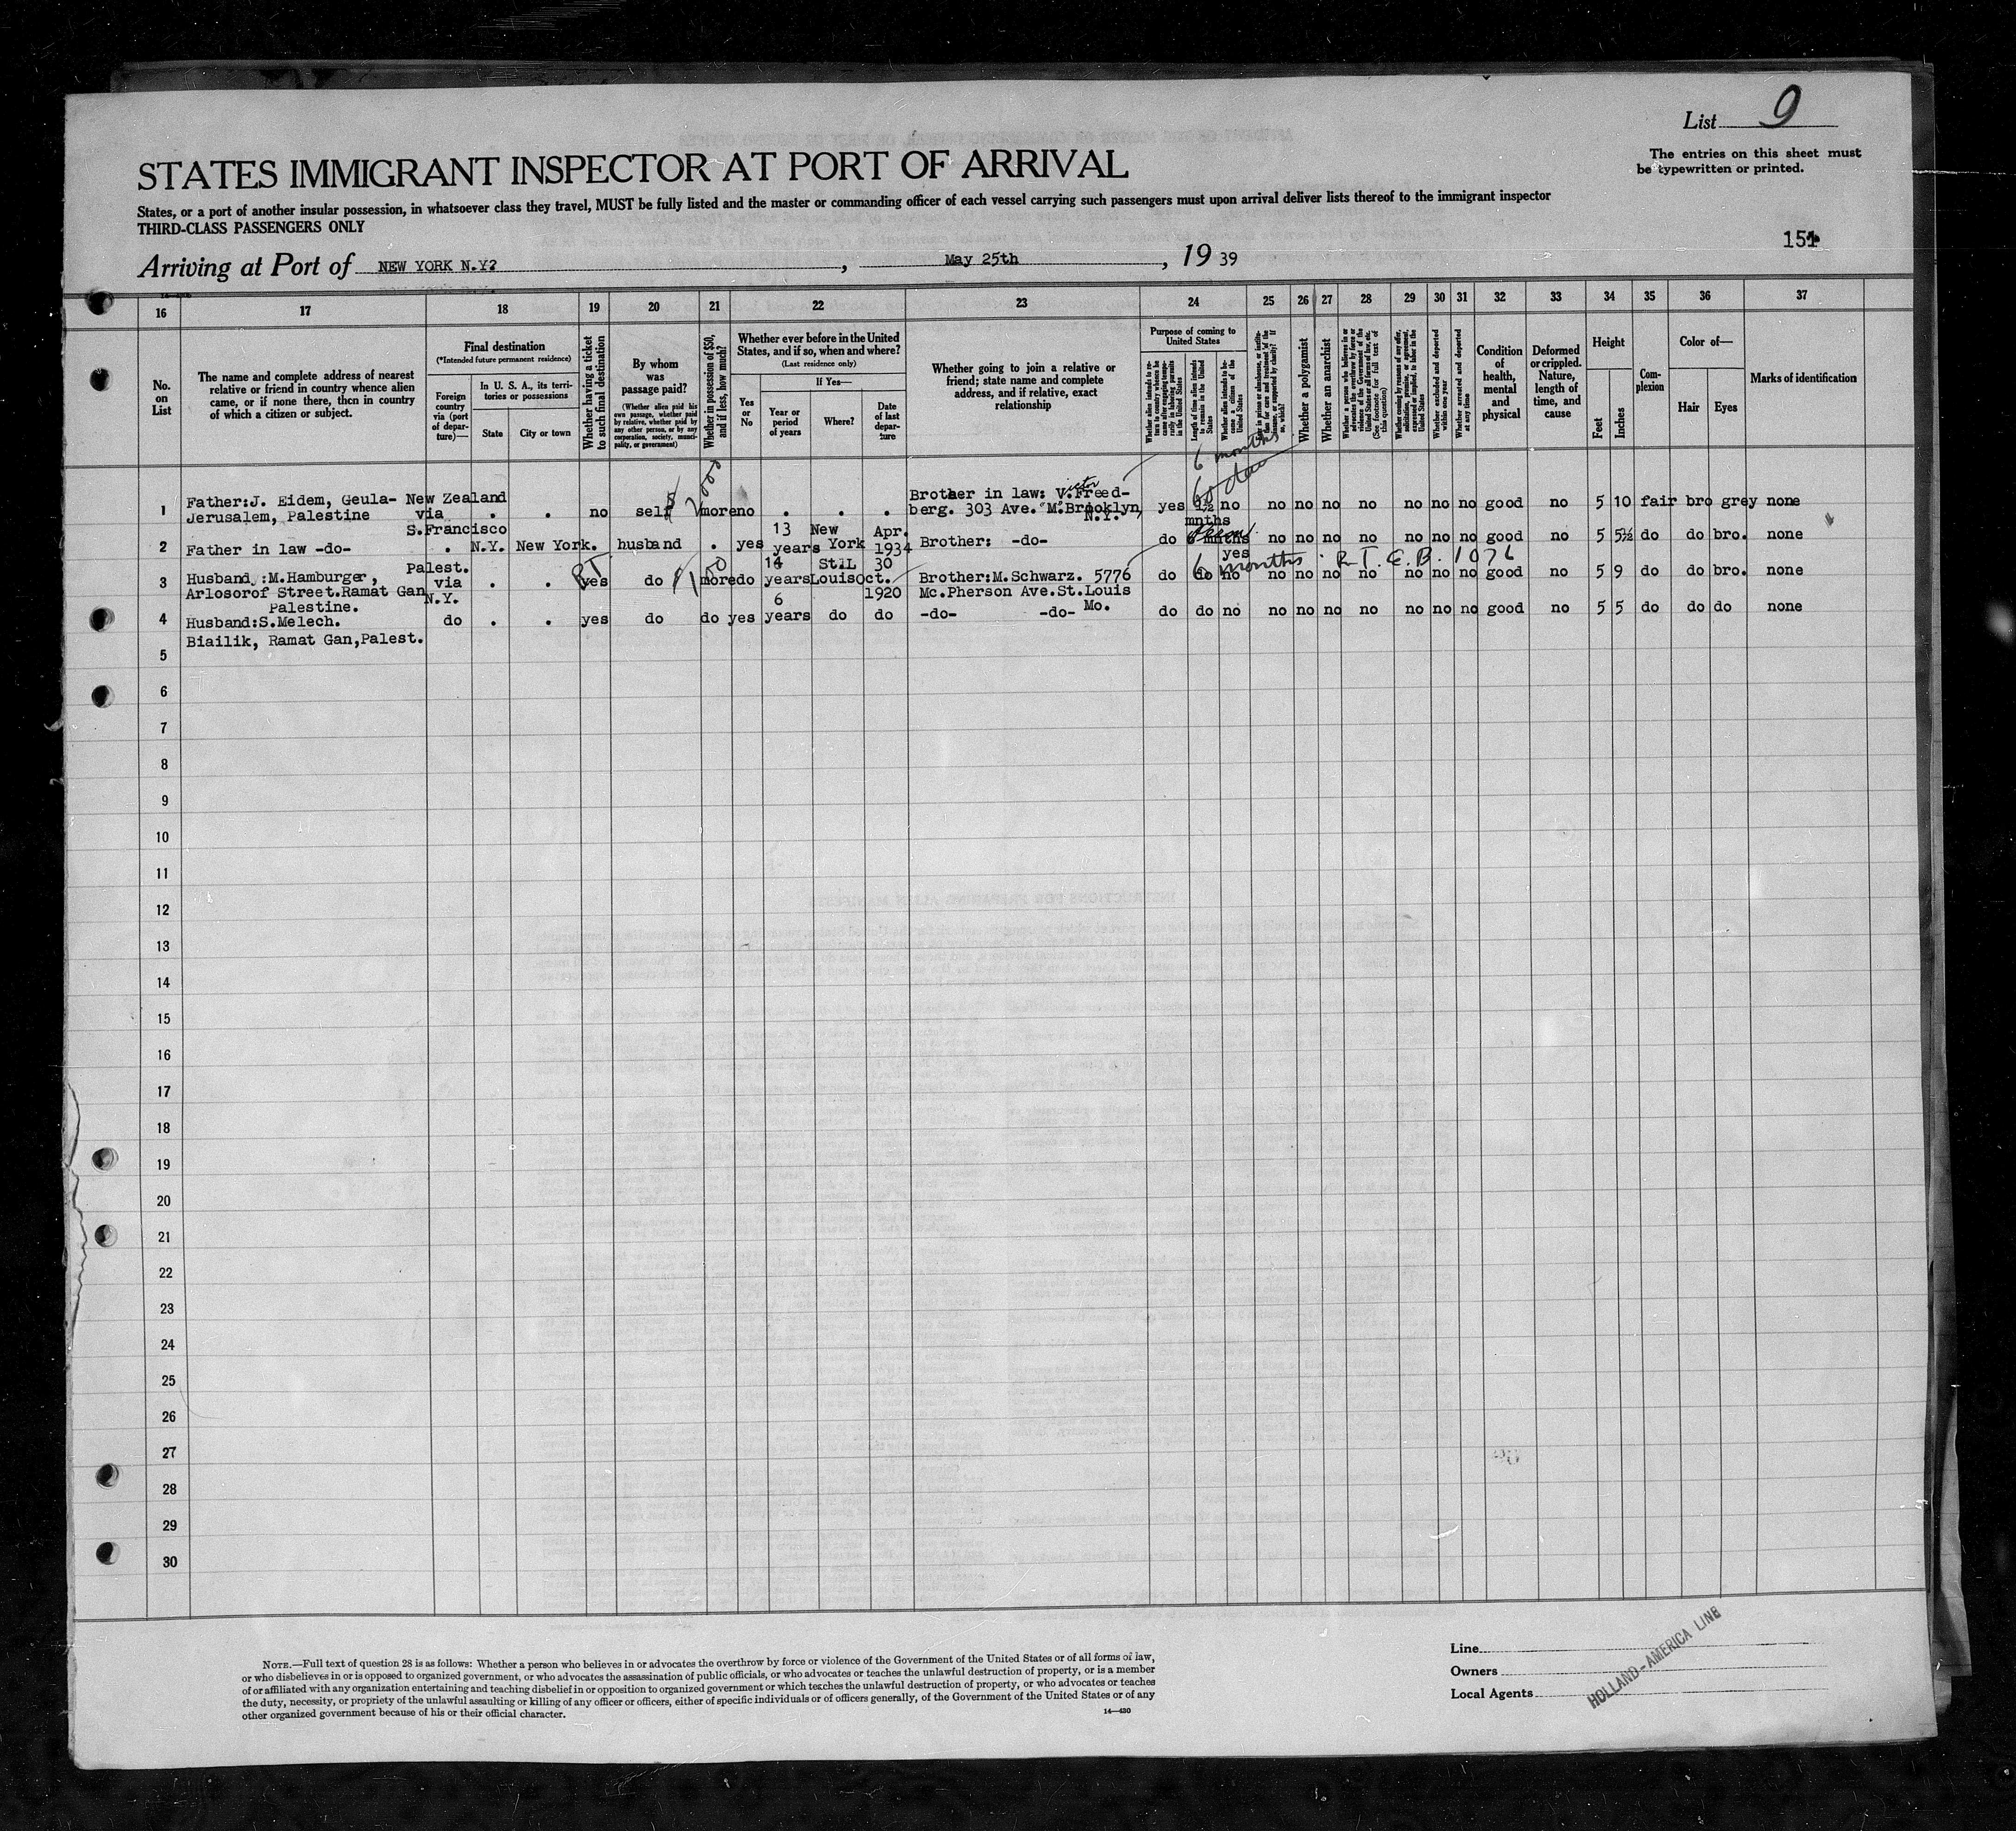 List 9
The entries on this sheet must
be typewritten or printed.
STATES IMMIGRANT INSPECTOR AT PORT OF ARRIVAL
States, or a port of another insular possession, in whatsoever class they travel, MUST be fully listed and the master or commanding officer of each vessel carrying such passengers must upon arrival deliver lists thereof to the immigrant inspector
THIRD-CLASS PASSENGERS ONLY
151
Arriving at Port of NEW YORK N.Y? , May 25th , 19 39
16 17 18 19 20 21 22 23 24 25 26 27 28 29 30 31 32 33 34 35 36 37
No. on List
The name and complete address of nearest
relative or friend in country whence alien
came, or if none there, then in country
of which a citizen or subject.
Final destination
(*Intended future permanent residence)
Foreign country via (port of departure)—
In U. S. A., its territories or possessions
State
City or town
Whether having a ticket to such final destination
By whom was passage paid?
(Whether alien paid his own passage, whether paid by relative, whether paid by any other person, or by any corporation, society, municipality, or government)
Whether in possession of $50, and if less, how much?
Whether ever before in the United
States, and if so, when and where?
(Last residence only)
Yes or No
If Yes—
Year or period of years
Where?
Date of last departure
Whether going to join a relative or
friend; state name and complete
address, and if relative, exact
relationship
Purpose of coming to
United States
Length of time alien intends to remain in the United States
Whether alien intends to become a citizen of the United States
Whether a polygamist
Whether an anarchist
Whether excluded and deported within one year
Whether arrested and deported at any time
Condition of health, mental and physical
Deformed or crippled. Nature, length of time, and cause
Height
Feet
Inches
Complexion
Color of—
Hair
Eyes
Marks of identification
6 months
1 Father:J. Eidem, Geula- New Zealand
Jerusalem, Palestine via . . no self $ 2000 more no . . . Brother in law: V.Freed-
berg. 303 Ave. "M."Brooklyn, N.Y. yes no no no no no no no no good no 5 10 fair bro grey none
S.Francisco
2 Father in law -do- . N.Y. New York. husband . yes 13 years New York Apr. 1934 Brother: -do- do yes no no no no no no no good no 5 5½ do do bro. none
3 Husband :M.Hamburger, Palest. via N.Y. . . yes RT do $100 more do 14 years St.L Louis 30 Oct. 1920 Brother:M.Schwarz. 5776 do do no no no no no no no no good no 5 9 do do bro. none
6 months R.T. E.B. 1076
Arlosorof Street.Ramat Gan
Palestine.
Mc.Pherson Ave.St.Louis
Mo.
4 Husband:S.Melech. do . . yes do do yes 6 years do do -do- -do- do do no no no no no no no no good no 5 5 do do do none
Biailik, Ramat Gan,Palest.
5
6
7
8
9
10
11
12
13
14
15
16
17
18
19
20
21
22
23
24
25
26
27
28
29
30
NOTE.—Full text of question 28 is as follows: Whether a person who believes in or advocates the overthrow by force or violence of the Government of the United States or of all forms of law,
or who disbelieves in or is opposed to organized government, or who advocates the assassination of public officials, or who advocates or teaches the unlawful destruction of property, or is a member
of or affiliated with any organization entertaining and teaching disbelief in or opposition to organized government or which teaches the unlawful destruction of property, or who advocates or teaches
the duty, necessity, or propriety of the unlawful assaulting or killing of any officer or officers, either of specific individuals or of officers generally, of the Government of the United States or of any
other organized government because of his or their official character.
14—430
Line
Owners
Local Agents
HOLLAND-AMERICA LINE